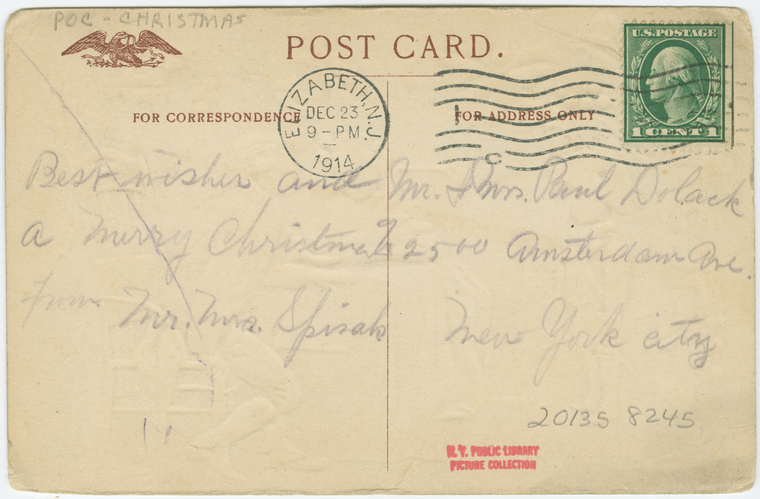 POC - CHRISTMAS
POST CARD.
FOR CORRESPONDENCE
FOR ADDRESS ONLY
ELIZABETH, N.J.
DEC 23
9 - PM
1914
U.S. POSTAGE
1 CENT 1
Best wishes and
a Merry Christmas
from Mr. Mrs. Spisak
Mr. & Mrs. Paul Dolack
2500 Amsterdam Ave.
New York city
20135 8245
N.Y. PUBLIC LIBRARY
PICTURE COLLECTION